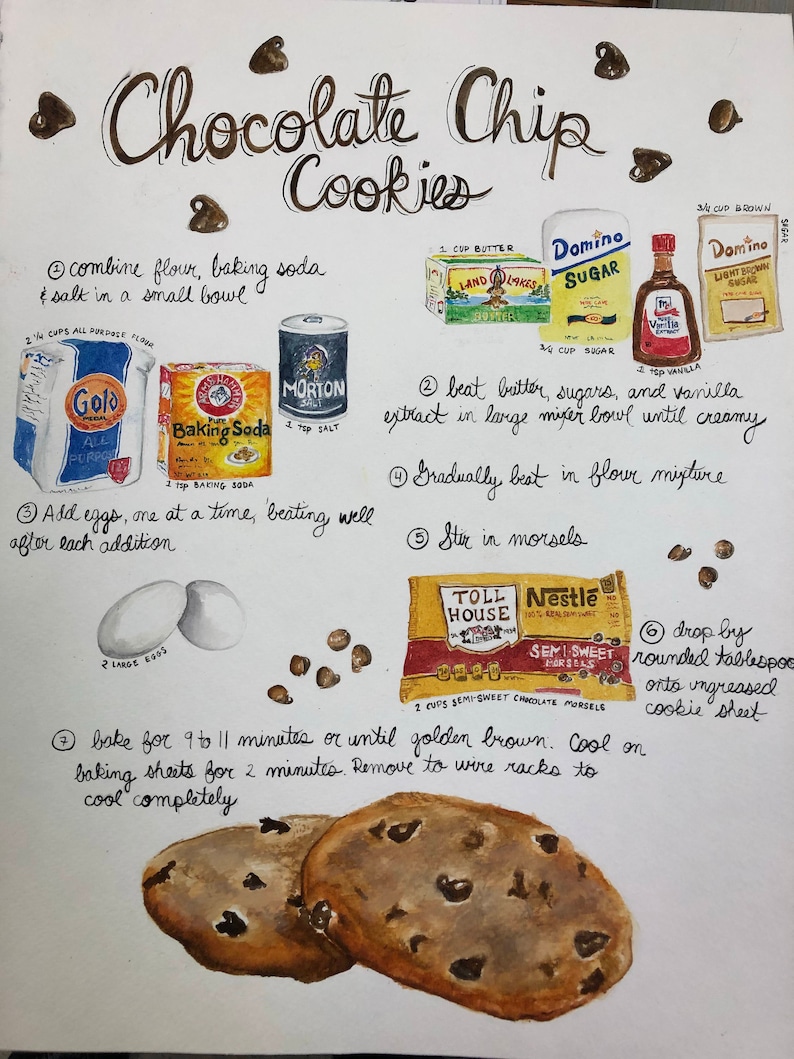 Chocolate Chip
Cookies
① combine flour, baking soda
& salt in a small bowl
2 1/4 CUPS ALL PURPOSE FLOUR
Gold
MEDAL
ALL
PURPOSE
ARM & HAMMER
PURE
Baking Soda
1 tsp BAKING SODA
MORTON
SALT
1 tsp SALT
1 CUP BUTTER
LAND O LAKES
BUTTER
Domino
SUGAR
3/4 CUP SUGAR
PURE
Vanilla
EXTRACT
1 tsp VANILLA
3/4 CUP BROWN
SUGAR
Domino
LIGHT BROWN
SUGAR
② beat butter, sugars, and vanilla
extract in large mixer bowl until creamy
③ Add eggs, one at a time, beating well
after each addition
2 LARGE EGGS
④ Gradually beat in flour mixture
⑤ Stir in morsels
TOLL
HOUSE
1939
Nestlé
100% REAL SEMISWEET
NO
NO
SEMI-SWEET
MORSELS
2 CUPS SEMI-SWEET CHOCOLATE MORSELS
⑥ drop by
rounded tablespoo
onto ungreased
cookie sheet
⑦ bake for 9 to 11 minutes or until golden brown. Cool on
baking sheets for 2 minutes. Remove to wire racks to
cool completely